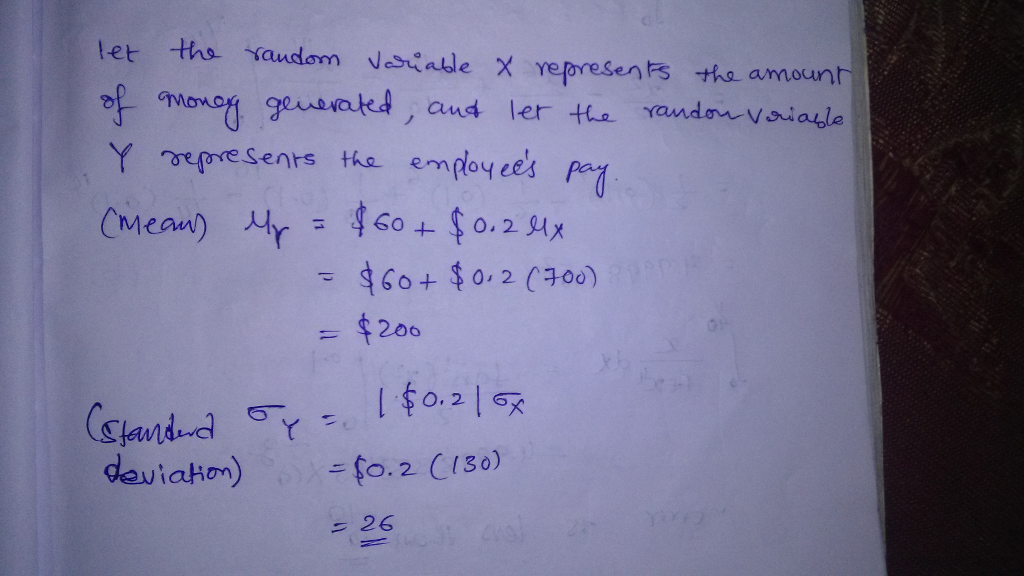 let the random variable X represents the amount
of money generated, and let the random variable
Y represents the employee's pay.
(Mean) μY = $60 + $0.2 μX
= $60 + $0.2 (700)
= $200
(Standard σY = |$0.2| σX
deviation) = $0.2 (130)
= 26